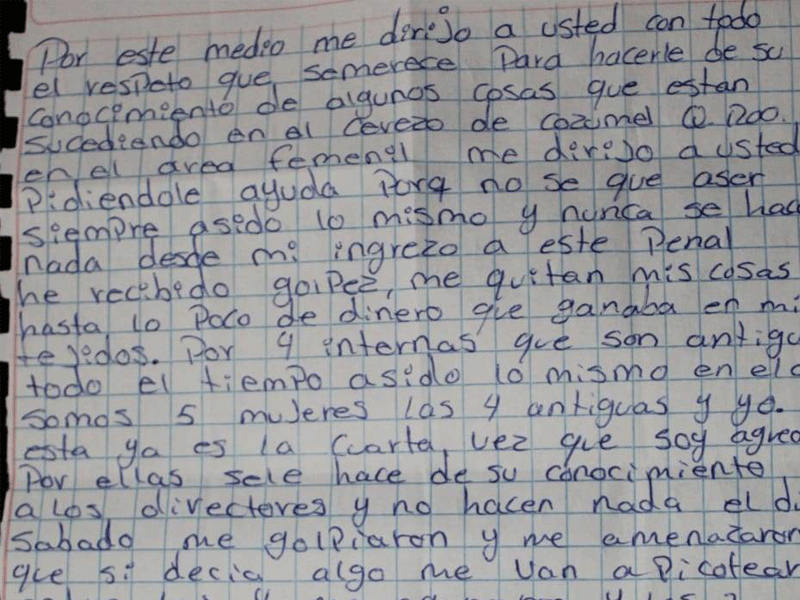 Por este medio me dirijo a usted con todo
el respeto que semerece Para hacerle de su
conocimiento de algunos cosas que estan
sucediendo en el Cerezo de cozumel Q. Roo.
en el area femenil me dirijo a usted
Pidiendole ayuda Porq no se que aser
siempre asido lo mismo y nunca se hac
nada desde mi ingrezo a este Penal
he recibido golpez, me quitan mis cosas
hasta lo Poco de dinero que ganaba en mi
tejidos. Por 4 internas que son antigu
todo el tiempo asido lo mismo en el
somos 5 mujeres las 4 antiguas y yo.
esta ya es la Cuarta, vez que soy agred
Por ellas sele hace de su conocimiento
a los directores y no hacen nada el di
sabado me golpiaron y me amenazaron
que si decia algo me van a Picotear